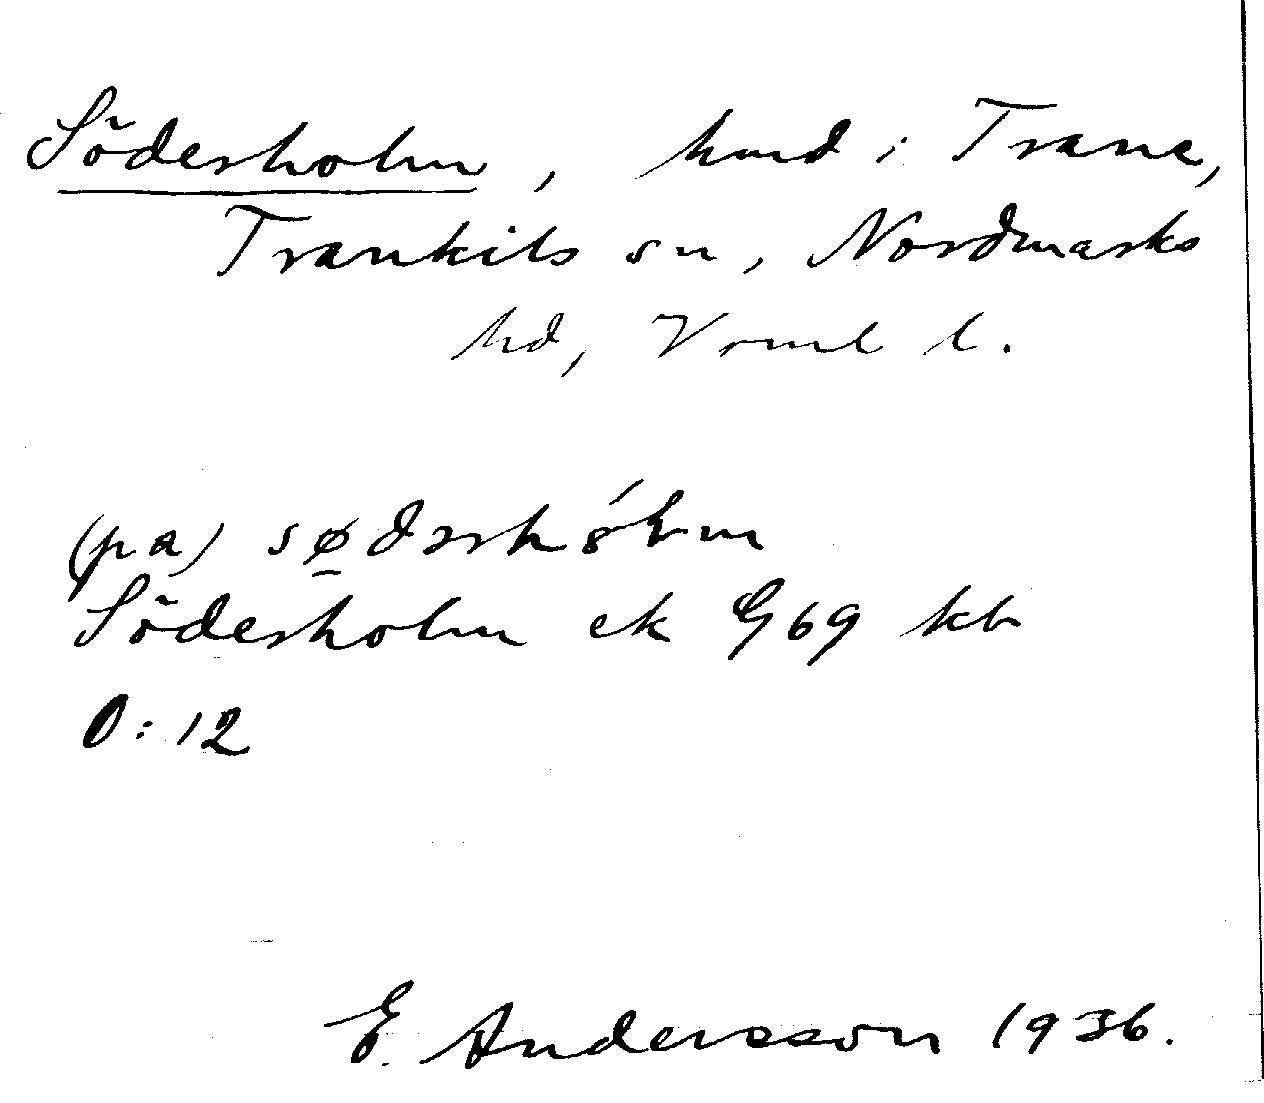 Söderholm, hmd i Trane,
Trankils sn, Nordmarks
hd, Vrml l.
(pa)
Söderholm ek G 69 kb
0:12
E. Andersson 1936.